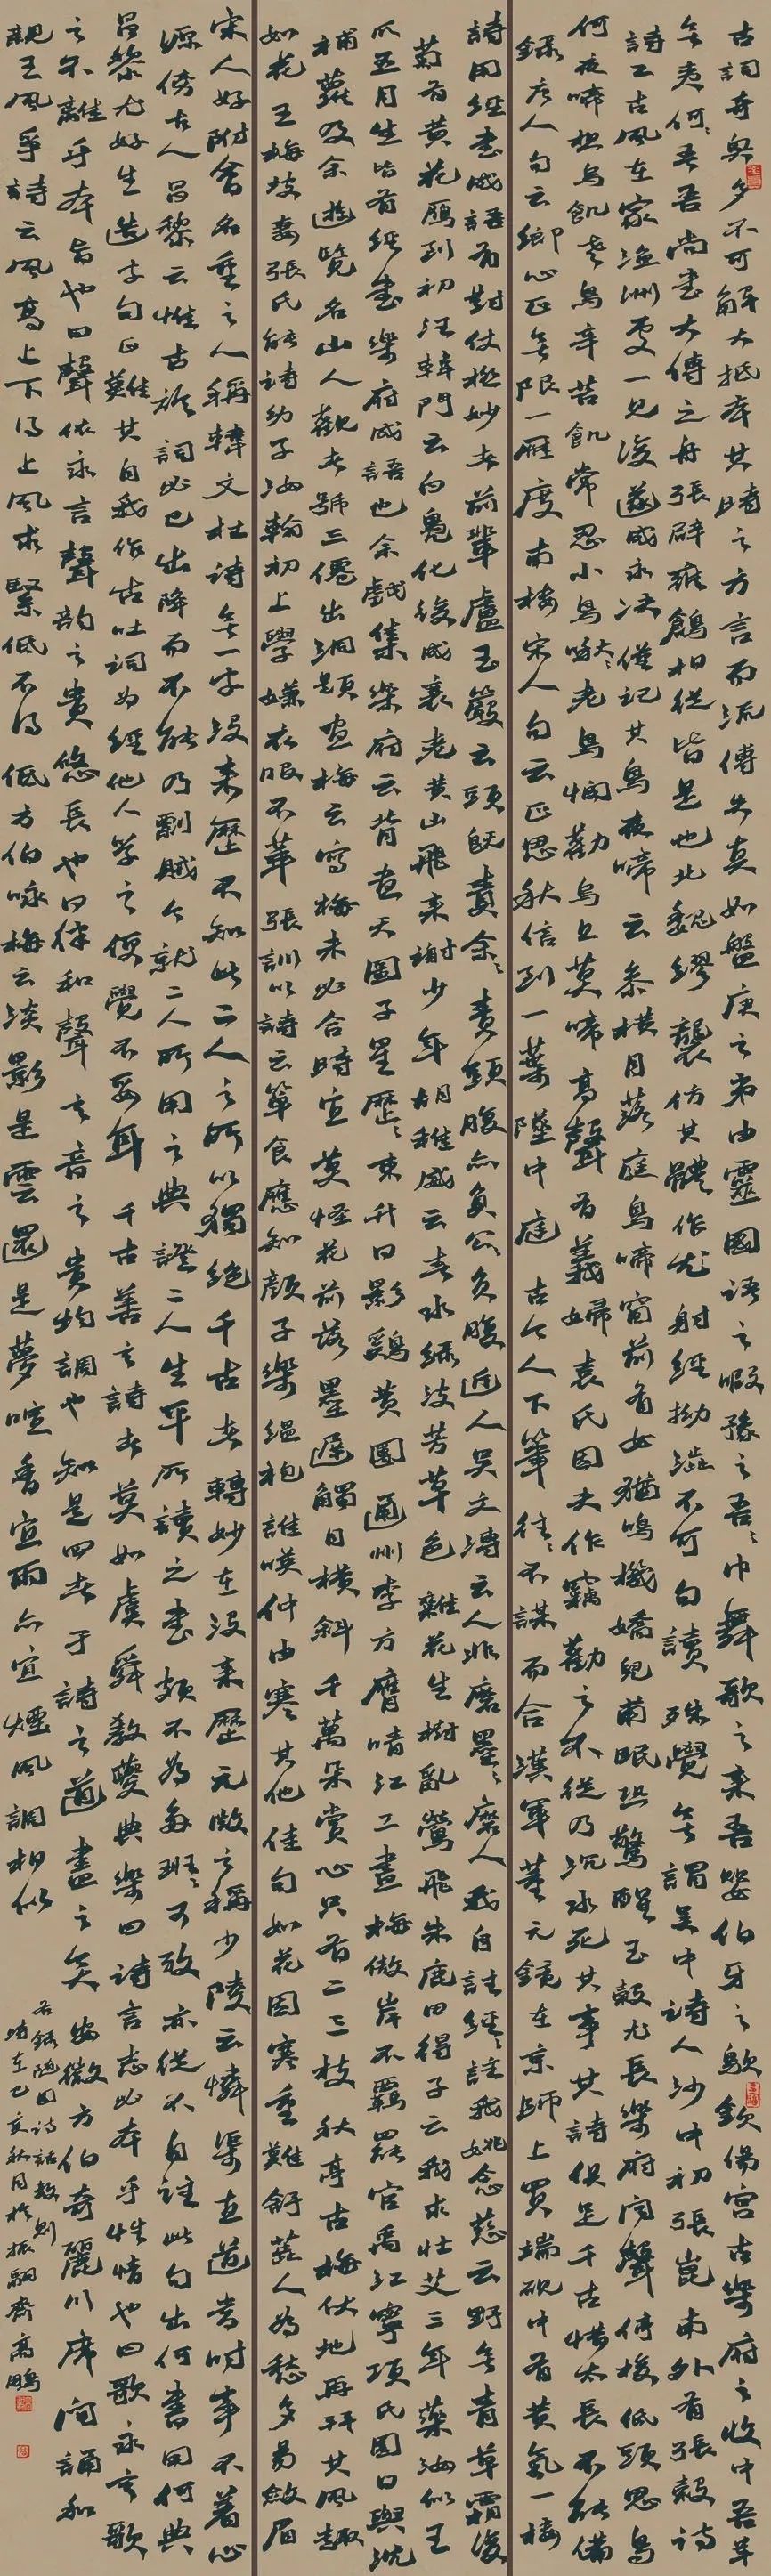 古詞奇奧多不可解大抵本其時之方言而流傳失真如盤庚之弔由靈國語之暇豫之吾吾巾舞歌之來吾嬰伯牙之歍欽傷宮古樂府之收中吾羊
無夷何何吾吾尚書大傳之舟張辟雍鶬相從皆是也北魏繆襲仿其體作尤射經拗澀不可句讀殊覺無謂吳中詩人沙斗初張崑南外有張轂詩
詩工古風在家漁洲處一見後遂成永決僅記其烏夜啼云參橫月落庭烏啼窗前有女猶鳴機嬌兒前眠恐驚醒玉轂尤長樂府聞聲倚梭低頭思烏
何夜啼想烏飢老烏辛苦飢常忍小烏啼老烏憫勸烏且莫啼高聲有義婦袁氏因夫作竊勸之不從乃沉水死其事其詩俱足千古惜太長不能備
錄唐人句云鄉心正無限一雁度南樓宋人句云正思秋信到一葉墜中庭古今人下筆往往不謀而合漢軍董元鏡在京師上買端硯中有黃氣一樓
詩用經書成語有對仗極妙者前輩盧玉巖云頭既責余余責頭腹亦負公公負腹近人吳文溥云人非磨墨墨磨人我自註經經註我姚念慈云野無青草霜後
菊有黃花雁到初汪韓門云白鳧化後成衰老黃山飛來謝少年胡稚威云春水綠波芳草色雜花生樹亂鶯飛朱鹿田得子云我求壯艾三年藥汝似王
瓜五月生皆有經書樂府成語也余戲集樂府云背畫天圖子星歷歷東升日影雞黃團通州李方膺晴江工畫梅傲岸不羈罷官寓江寧項氏園日與沈
補蘿及余遊覽名山人觀者號三僊出洞題畫梅云寫梅未必合時宜莫怪花前落墨遲觸目橫斜千萬朵賞心只有二三枝秋亭古梅仗地再拜其風趣
如花王梅坡妻張氏能詩幼子汝翰初上學嫌衣服不華張訓以詩云簞食應知顏子樂縕袍誰嘆仲由寒其他佳句如花因寒重難舒蕊人為愁多易斂眉
宋人好附會名重之人稱韓文杜詩無一字沒來歷不知此二人之所以獨絕千古者轉妙在沒來歷元微之稱少陵云憐渠直道當時事不著心
源傍古人昌黎云惟古於詞必己出降而不能乃剽賊今就二人所用之典證二人生平所讀之書頗不為多班班可考亦從不自註此句出何書用何典
昌黎尤好生造字句正難其自我作古吐詞為經他人學之便覺不妥耳千古善言詩者莫如虞舜教夔典樂曰詩言志必本乎性情也曰歌永言歌
之不離乎本旨也曰聲依永言聲韻之貴悠長也曰律和聲言音之貴均調也知是四者于詩之道盡之矣安徽方伯奇麗川席間誦和
親王風箏詩云風高上下得上風求緊低不得低方伯咏梅云淡影是雲還是夢暗香宜雨亦宜煙風調相似
右錄隨園詩話數則
時在己亥秋月於振翮齋高鵬